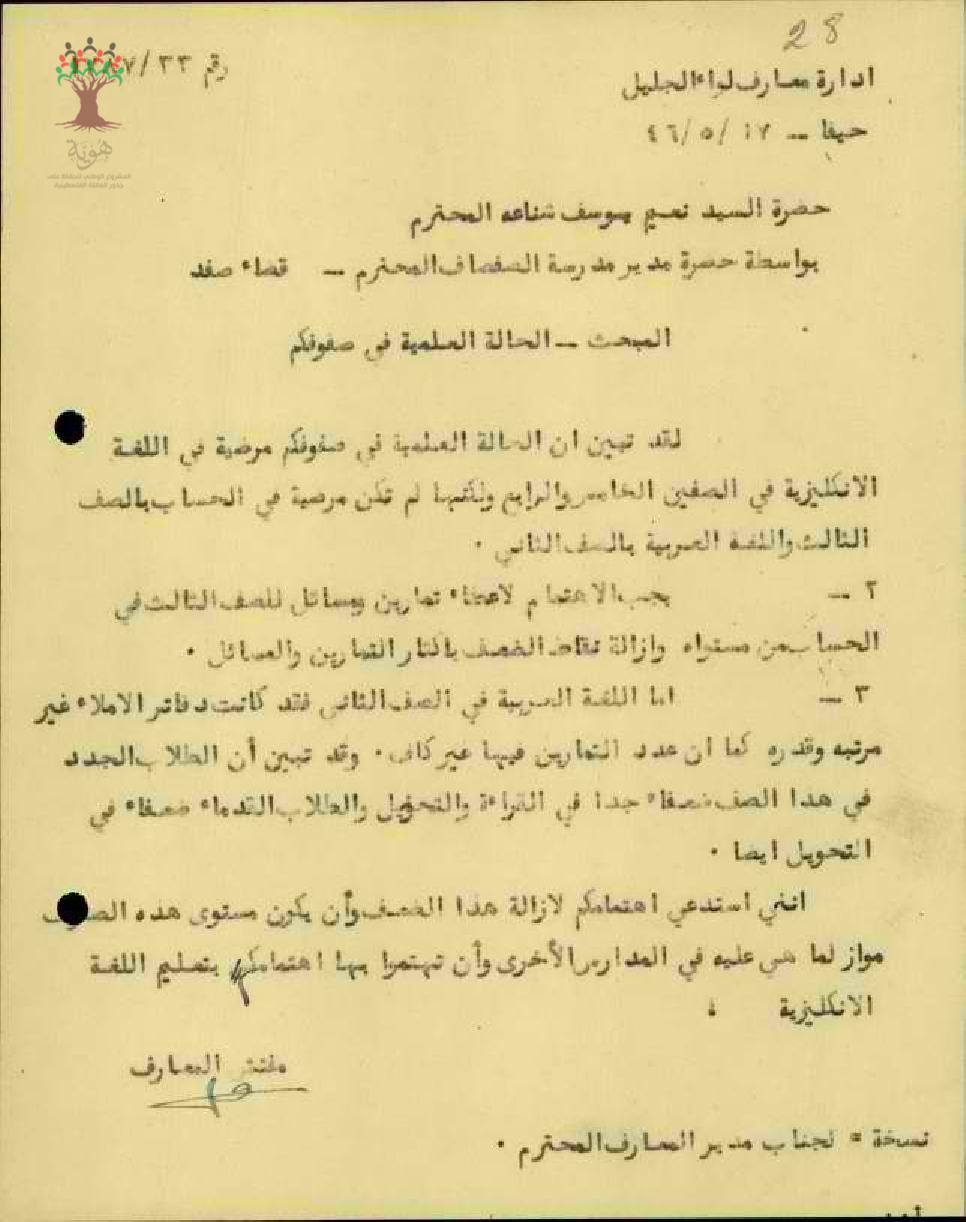 28
رقم ٣٣/
ادارة معارف لواء الجليل
حيفا – ١٧ /٥ /٤٦
هُويّة
المشروع الوطني للحفاظ على
جذور العائلة الفلسطينية
حضرة السيد نعيم يوسف شناعه المحترم
بواسطة حضرة مدير مدرسة الصفصاف المحترم – قضاء صفد
المبحث – الحالة العلمية في صفوفكم
لقد تبين ان الحالة العلمية في صفوفكم مرضية في اللغة
الانكليزية في الصفين الخامس والرابع ولكنها لم تكن مرضية في الحساب بالصف
الثالث واللغة العربية بالصف الثاني .
٢ – يجب الاهتمام لاعطاء تمارين ومسائل للصف الثالث في
الحساب من مستواه وازالة نقاط الضعف باكثار التمارين والمسائل .
٣ – اما اللغة العربية في الصف الثاني فقد كانت دفاتر الاملاء غير
مرتبه وقذره كما ان عدد التمارين فيها غير كاف . وقد تبين أن الطلاب الجدد
في هذا الصف ضعفاء جدا في القراءة والتحويل والطلاب القدماء ضعفاء في
التحويل ايضا .
انني استدعي اهتمامكم لازالة هذا الضعف وأن يكون مستوى هذه
مواز لما هي عليه في المدارس الأخرى وأن تهتموا بها اهتمامكم بتعليم اللغة
الانكليزية ؛
مفتش المعارف
نسخة = لجناب مدير المعارف المحترم .